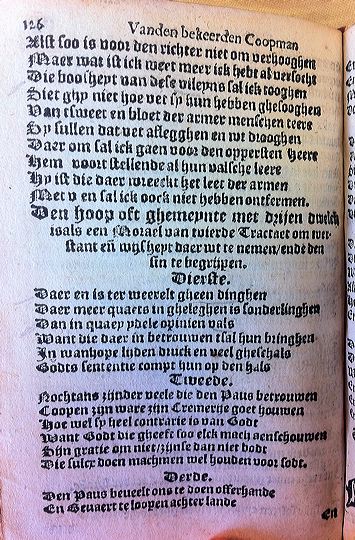 126 Vanden bekeerden Coopman
Aist soo is voor den richter niet om verhooghen
Maer wat ist ick weet meer ick hebt al versocht
Die boosheyt van dese vileyns sal ick tooghen
Siet ghy niet hoe vet sy hun hebben ghesooghen
Van tsweet en bloet der armer menschen teere
Sy sullen dat vet aflegghen en wt drooghen
Daer om sal ick gaen voor den oppersten Heere
Hem voort stellende al hun valsche leere
Hy ist die daer wreeckt het leet der armen
Met v en sal ick oock niet hebben ontfermen.
Den hoop oft ghemeynte met drijen dwelck
wals een Morael van vierde Tractaet om ver-
stant en wijsheyt daer wt te nemen/ende den
sin te begrijpen.
Dierste.
Daer en is ter weerelt gheen dinghen
Daer meer quaets in gheleghen is sonderlinghen
Dan in quaey ydele opinien vals
Want die daer in betrouwen tsal hun bringhen
In wanhope lijden druck en veel ghescals
Godts sententie compt hun op den hals
Tweede.
Nochtans zijnder veele die den Paus betrouwen
Coopen zijn ware zijn Cremerije goet houwen
Hoe wel sy heel contrarie is van Godt
Want Godt die gheeft soo elck mach aenschouwen
Sijn gratie om niet/zijnse dan niet bodt
Die sulcx doen machmen wel houden voor sodt.
Derde.
Den Paus beveelt ons te doen offerhande
En Bevaert te loopen achter lande
En